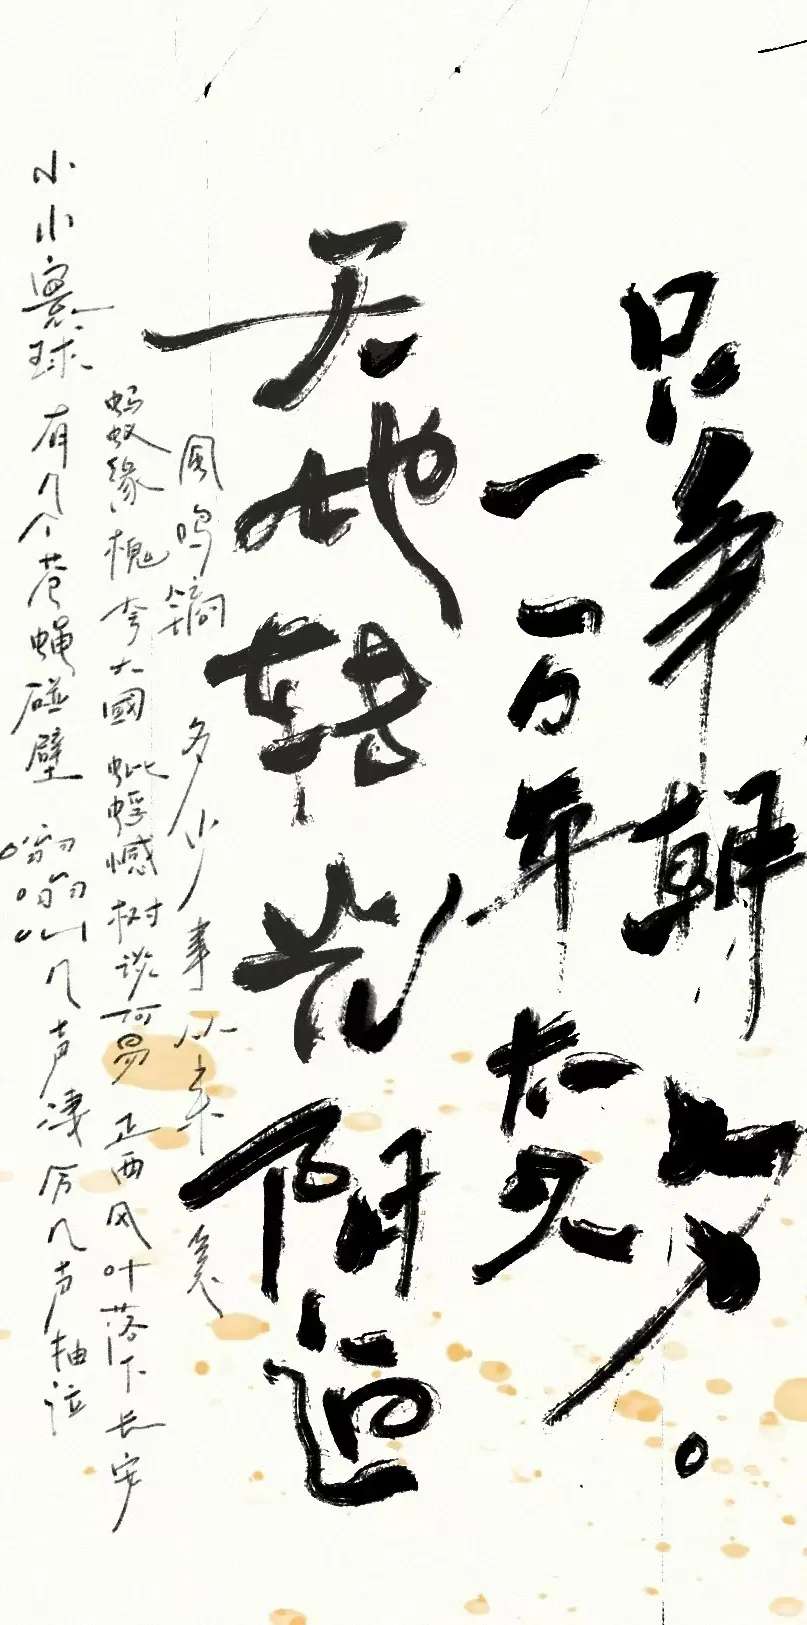 小小寰球 有几个苍蝇碰壁 嗡嗡叫几声凄厉几声抽泣
蚂蚁缘槐夸大國 蚍蜉憾树谈何易 正西风叶落下长安
風鸣镝 多少事从来急
天地转光阴迫
一万年太久
只争朝夕。